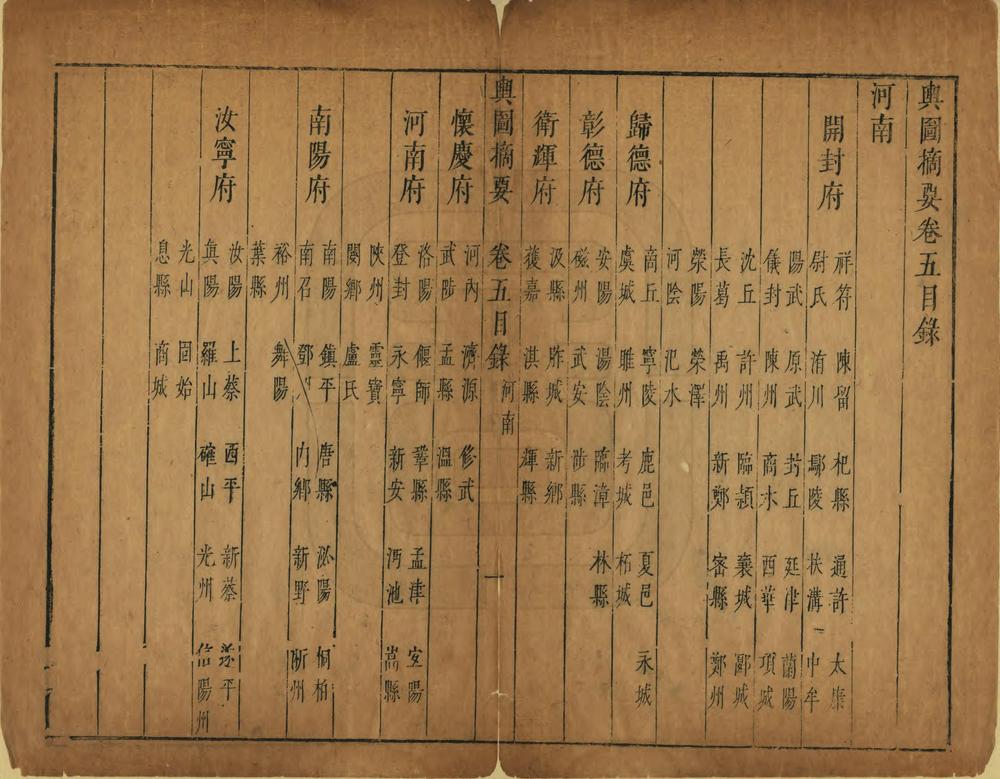 輿圖摘要卷五目錄
河南
開封府
祥符 陳留 杞縣 通許 太康
尉氏 洧川 鄢陵 扶溝 中牟
陽武 原武 封丘 延津 蘭陽
儀封 陳州 商水 西華 項城
沈丘 許州 臨潁 襄城 郾城
長葛 禹州 新鄭 密縣 鄭州
滎陽 滎澤
河陰 汜水
歸德府
商丘 寧陵 鹿邑 夏邑 永城
虞城 睢州 考城 柘城
彰德府
安陽 湯陰 臨漳 林縣
磁州 武安 涉縣
衛輝府
汲縣 胙城 新鄉
獲嘉 淇縣 輝縣
輿圖摘要 卷五目錄 河南 一
懷慶府
河內 濟源 修武
武陟 孟縣 溫縣
河南府
洛陽 偃師 鞏縣 孟津 宜陽
登封 永寧 新安 沔池 嵩縣
陝州 靈寶
閿鄉 盧氏
南陽府
南陽 鎮平 唐縣 泌陽 桐柏
南召 鄧州 內鄉 新野 淅州
裕州 舞陽
葉縣
汝寧府
汝陽 上蔡 西平 新蔡 遂平
真陽 羅山 確山 光州 信陽州
光山 固始
息縣 商城